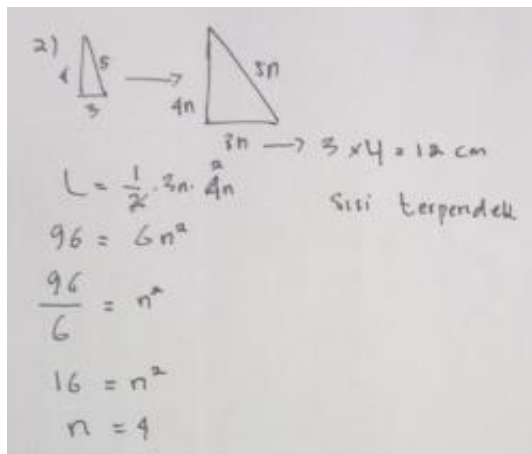 2)
4 5
3
4n 5n
3n → 3 × 4 = 12 cm
Sisi terpendek
L = 1/2 · 3n · 4n 2
96 = 6n²
96/6 = n²
16 = n²
n = 4